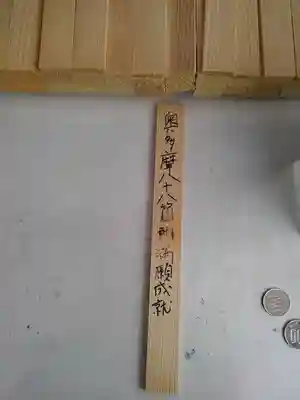 奥多摩八十八 満願成就